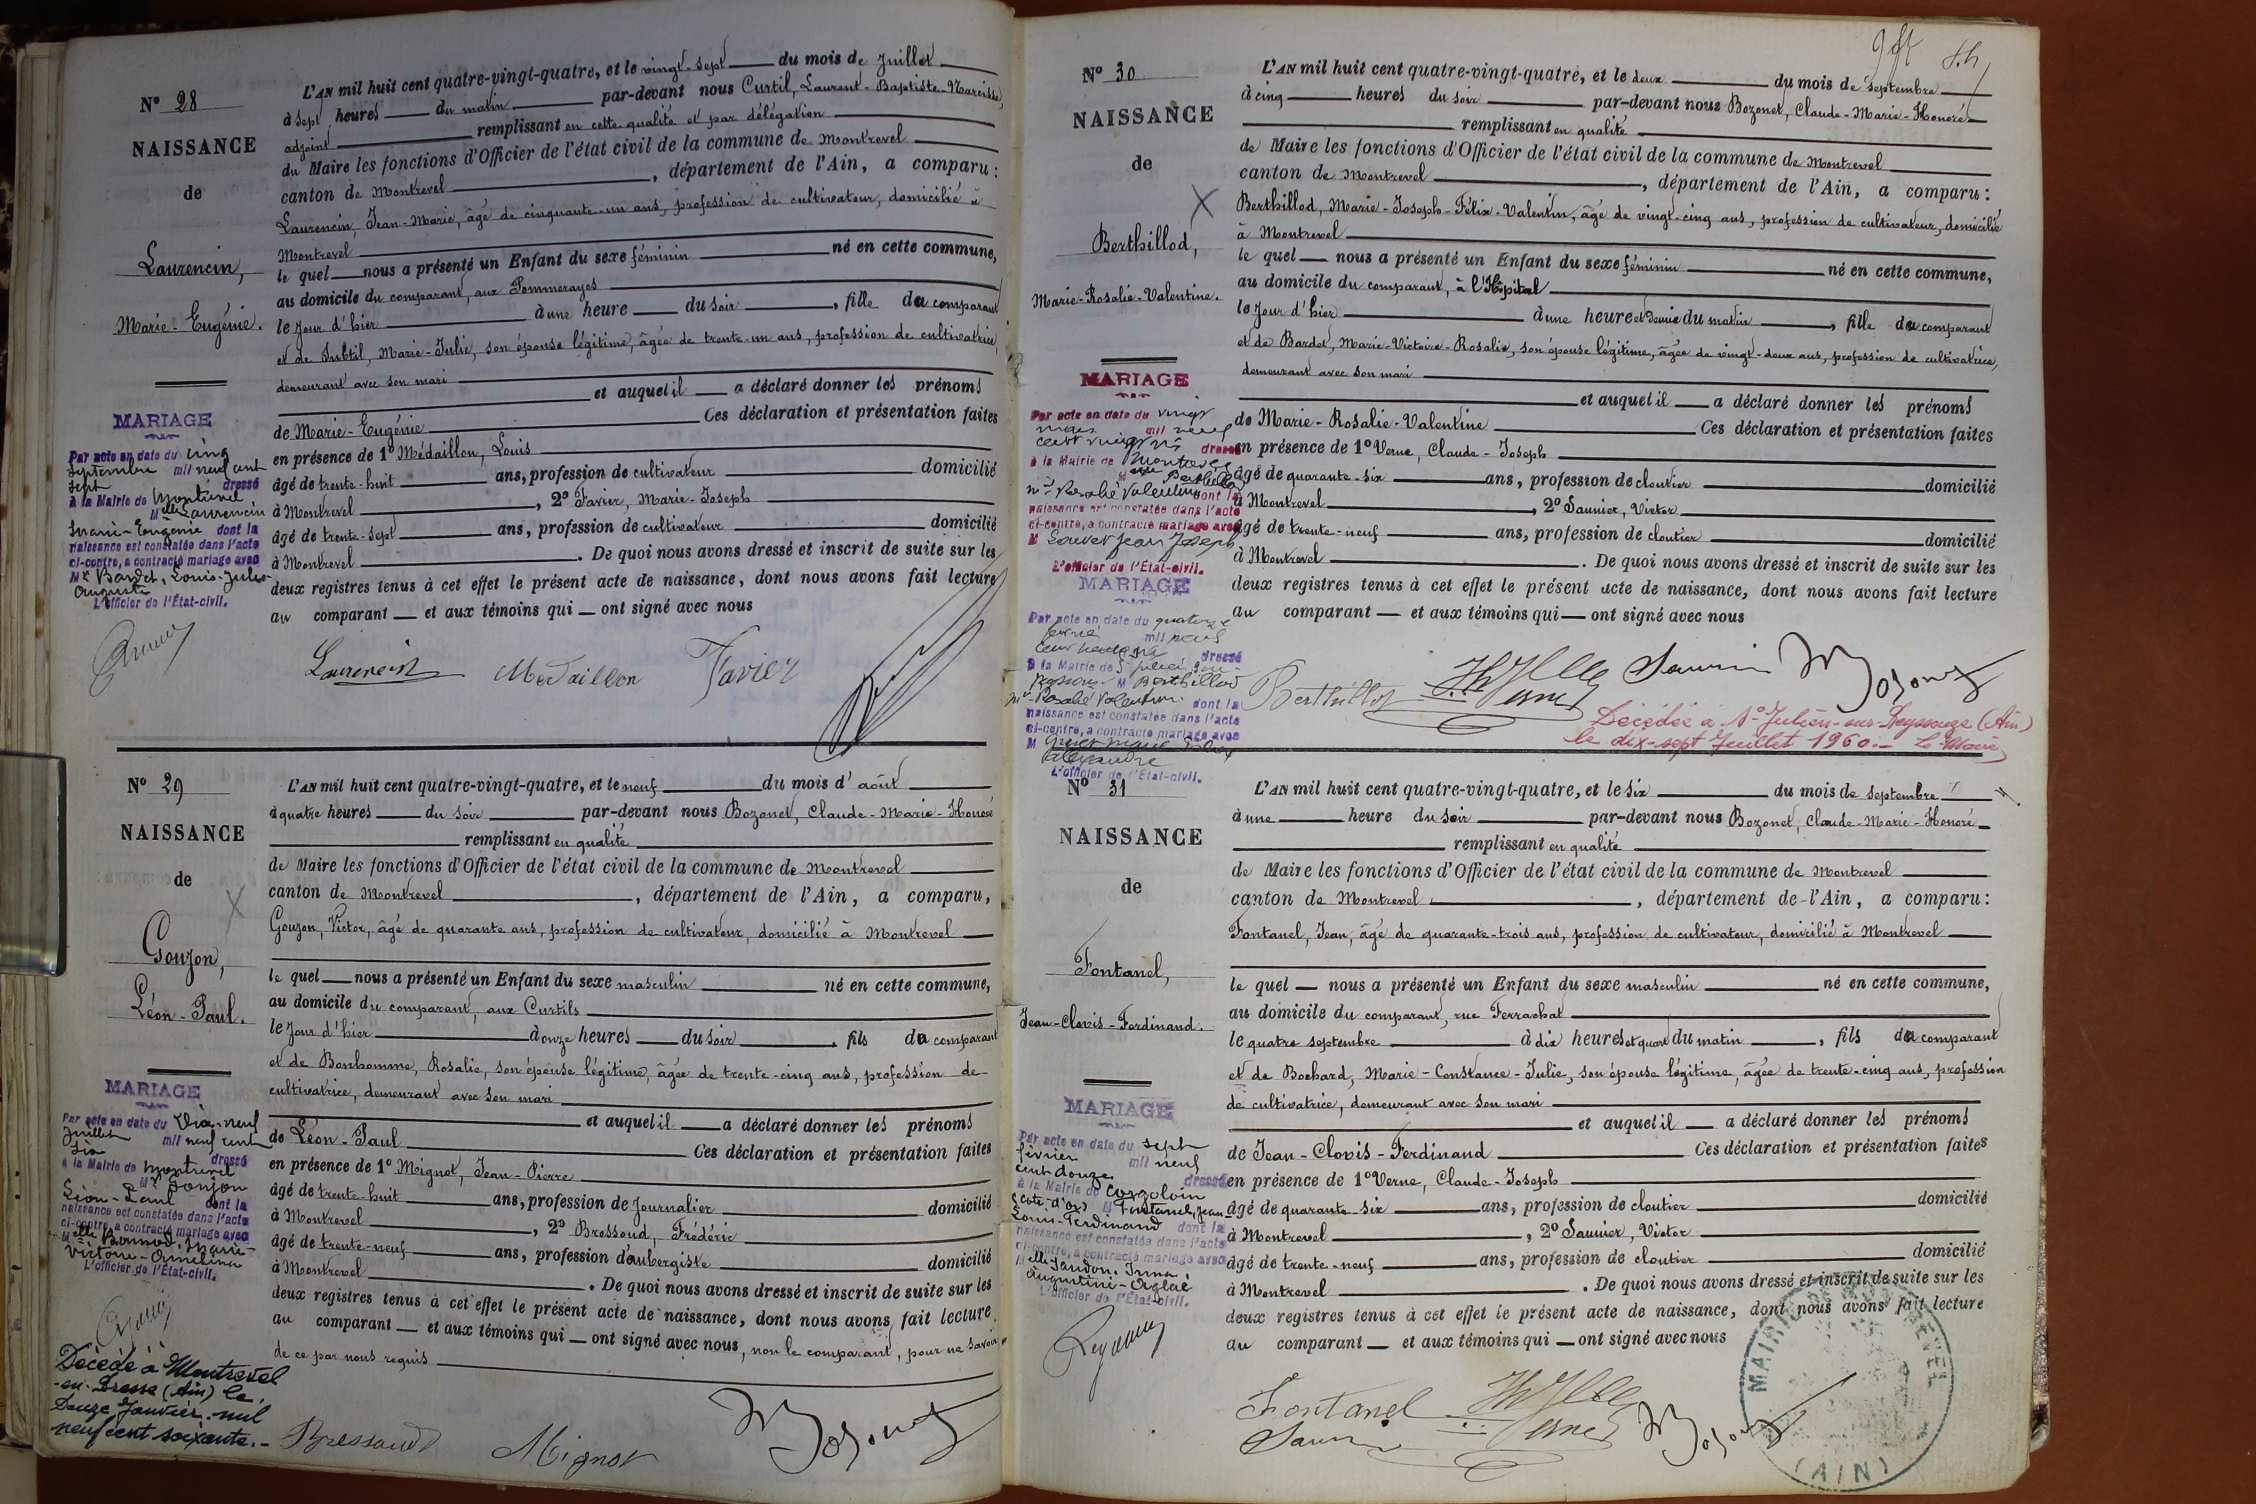 Nº 28
NAISSANCE
de
Laurencin,
Marie-Eugénie.
L'AN mil huit cent quatre-vingt-quatre, et le vingt-sept du mois de Juillet
à sept heures du matin par-devant nous Curtil, Laurent-Baptiste-Narcisse,
adjoint remplissant en cette qualité et par délégation
du Maire les fonctions d'Officier de l'état civil de la commune de Montrevel
canton de Montrevel, département de l'Ain, a comparu:
Laurencin, Jean-Marie, âgé de cinquante-un ans, profession de cultivateur, domicilié à
Montrevel
le quel nous a présenté un Enfant du sexe féminin né en cette commune,
au domicile du comparant, aux Pommerayes
le jour d'hier à une heure du soir, fille du comparant
et de Subtil, Marie-Julie, son épouse légitime, âgée de trente-un ans, profession de cultivatrice,
demeurant avec son mari
et auquel il a déclaré donner les prénoms
de Marie-Eugénie Ces déclaration et présentation faites
en présence de 1º Médaillon, Louis
âgé de trente-huit ans, profession de cultivateur domicilié
à Montrevel, 2º Favier, Marie-Joseph
âgé de trente-sept ans, profession de cultivateur domicilié
à Montrevel. De quoi nous avons dressé et inscrit de suite sur les
deux registres tenus à cet effet le présent acte de naissance, dont nous avons fait lecture
au comparant et aux témoins qui ont signé avec nous
MARIAGE
Par acte en date du cinq
septembre mil neuf cent
sept dressé
à la Mairie de Montrevel
Melle Laurencin
Marie-Eugénie dont la
naissance est constatée dans l'acte
ci-contre, a contracté mariage avec
Mr Bardet, Louis-Jules-
Auguste
L'officier de l'État-civil.
Laurencin Médaillon Favier
Nº 29
NAISSANCE
de
Gouzon,
Léon-Paul.
L'AN mil huit cent quatre-vingt-quatre, et le neuf du mois d'août
à quatre heures du soir par-devant nous Bozonet, Claude-Marie-Honoré
remplissant en qualité
de Maire les fonctions d'Officier de l'état civil de la commune de Montrevel
canton de Montrevel, département de l'Ain, a comparu,
Gouzon, Victor, âgé de quarante ans, profession de cultivateur, domicilié à Montrevel
le quel nous a présenté un Enfant du sexe masculin né en cette commune,
au domicile du comparant, aux Curtils
le jour d'hier à onze heures du soir, fils du comparant
et de Bonhomme, Rosalie, son épouse légitime, âgée de trente-cinq ans, profession de
cultivatrice, demeurant avec son mari
et auquel il a déclaré donner les prénoms
de Léon-Paul Ces déclaration et présentation faites
en présence de 1º Moignot, Jean-Pierre
âgé de trente-huit ans, profession de Journalier domicilié
à Montrevel, 2º Bressoud, Frédéric
âgé de trente-neuf ans, profession d'aubergiste domicilié
à Montrevel. De quoi nous avons dressé et inscrit de suite sur les
deux registres tenus à cet effet le présent acte de naissance, dont nous avons fait lecture
au comparant et aux témoins qui ont signé avec nous, non le comparant, pour ne savoir
de ce par nous requis
MARIAGE
Par acte en date du Dix-neuf
Juillet mil neuf cent
dix dressé
à la Mairie de Montrevel
Mr Gonjon
Léon-Paul dont la
naissance est constatée dans l'acte
ci-contre, a contracté mariage avec
Melle Marie-
Victoire-
L'officier de l'État-civil.
Décédé à Montrevel
-en-Bresse (Ain) le
Douze Janvier mil
neuf cent soixante.-
Bressoud Mignot Bozonet
Nº 30
NAISSANCE
de
Berthillod,
Marie-Rosalie-Valentine.
L'AN mil huit cent quatre-vingt-quatre, et le deux du mois de septembre
à cinq heures du soir par-devant nous Bozonet, Claude-Marie-Honoré
remplissant en qualité
de Maire les fonctions d'Officier de l'état civil de la commune de Montrevel
canton de Montrevel, département de l'Ain, a comparu:
Berthillod, Marie-Joseph-Félix-Valentin, âgé de vingt-cinq ans, profession de cultivateur, domicilié
à Montrevel
le quel nous a présenté un Enfant du sexe féminin né en cette commune,
au domicile du comparant, à l'Hôpital
le jour d'hier à une heure et demie du matin, fille du comparant
et de Bardet, Marie-Victoire-Rosalie, son épouse légitime, âgée de vingt-deux ans, profession de cultivatrice,
demeurant avec son mari
et auquel il a déclaré donner les prénoms
de Marie-Rosalie-Valentine Ces déclaration et présentation faites
en présence de 1º Verne, Claude-Joseph
âgé de quarante-six ans, profession de cloutier domicilié
à Montrevel, 2º Saunier, Victor
âgé de trente-neuf ans, profession de cloutier domicilié
à Montrevel. De quoi nous avons dressé et inscrit de suite sur les
deux registres tenus à cet effet le présent acte de naissance, dont nous avons fait lecture
au comparant et aux témoins qui ont signé avec nous
MARIAGE
Par acte en date du vingt
mars mil neuf
cent vingt dressé
à la Mairie de Montrevel
Berthillod
Mie Rosalie Valentine dont la
naissance est constatée dans l'acte
ci-contre, a contracté mariage avec
M Jean Joseph
L'officier de l'État-civil.
MARIAGE
Par acte en date du quatorze
mil neuf
cent dressé
à la Mairie de St Julien sur
Reyssouze M Berthillod
Mie Rosalie Valentine dont la
naissance est constatée dans l'acte
ci-contre, a contracté mariage avec
M
Alexandre
L'officier de l'État-civil.
Berthillod Verne Saunier Bozonet
Décédée à St Julien-sur-Reyssouze (Ain)
le dix-sept Juillet 1960.- Le Maire,
Nº 31
NAISSANCE
de
Fontanel,
Jean-Clovis-Ferdinand.
L'AN mil huit cent quatre-vingt-quatre, et le six du mois de septembre
à une heure du soir par-devant nous Bozonet, Claude-Marie-Honoré
remplissant en qualité
de Maire les fonctions d'Officier de l'état civil de la commune de Montrevel
canton de Montrevel, département de l'Ain, a comparu:
Fontanel, Jean, âgé de quarante-trois ans, profession de cultivateur, domicilié à Montrevel
le quel nous a présenté un Enfant du sexe masculin né en cette commune,
au domicile du comparant, rue Ferrachat
le quatre septembre à dix heures et quart du matin, fils du comparant
et de Bochard, Marie-Constance-Julie, son épouse légitime, âgée de trente-cinq ans, profession
de cultivatrice, demeurant avec son mari
et auquel il a déclaré donner les prénoms
de Jean-Clovis-Ferdinand Ces déclaration et présentation faites
en présence de 1º Verne, Claude-Joseph
âgé de quarante-six ans, profession de cloutier domicilié
à Montrevel, 2º Saunier, Victor
âgé de trente-neuf ans, profession de cloutier domicilié
à Montrevel. De quoi nous avons dressé et inscrit de suite sur les
deux registres tenus à cet effet le présent acte de naissance, dont nous avons fait lecture
au comparant et aux témoins qui ont signé avec nous
MARIAGE
Par acte en date du sept
février mil neuf
cent douze dressé
à la Mairie de Corgoloin
(Cote-d'or) M Fontanel, Jean
Louis-Ferdinand dont la
naissance est constatée dans l'acte
ci-contre, a contracté mariage avec
Melle Jandon, Irma,
Augustine-Aglaé
L'officier de l'État-civil.
Fontanel Verne
Saunier Bozonet
MAIRIE DE MONTREVEL
(AIN)